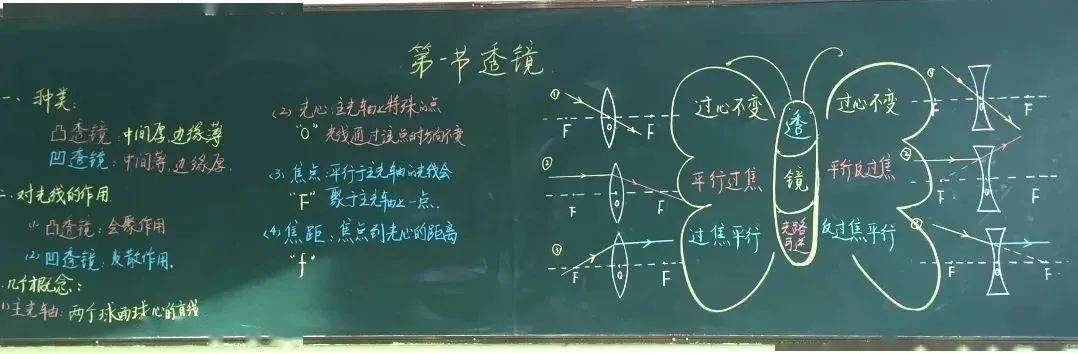 第一节透镜
一、种类:
凸透镜:中间厚,边缘薄
凹透镜:中间薄,边缘厚.
二、对光线的作用
(1)凸透镜:会聚作用
(2)凹透镜:发散作用.
几个概念:
(1)主光轴:两个球面球心的直线
(2)光心:主光轴上特殊的点
"O" 光线通过该点时方向不变
(3)焦点:平行于主光轴的光线会
"F" 聚于主光轴上一点.
(4)焦距:焦点到光心的距离
"f"
①
F O F
②
F O F
③
F O F
过心不变
平行过焦
过焦平行
透
镜
光路
可逆
过心不变
平行反过焦
反过焦平行
①
F O F
②
F O F
F O F